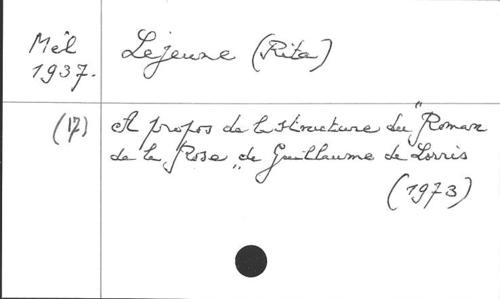 Mél
1937.
Lejeune (Rita)
(17)
A propos de la structure du "Roman
de la Rose" de Guillaume de Lorris
(1973)